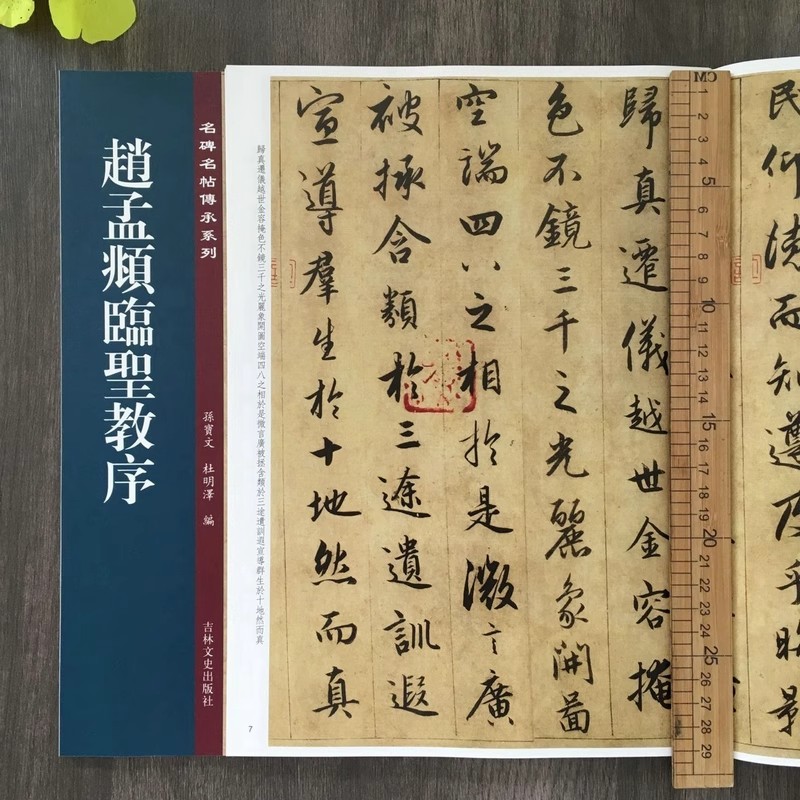 趙孟頫臨聖教序
名碑名帖傳承系列
孫寶文 杜明澤 編
吉林文史出版社
民仰德而知遵及乎晦影
歸真遷儀越世金容掩
色不鏡三千之光麗象開圖
空端四八之相於是微言廣
被拯含類於三途遺訓遐
宣導羣生於十地然而真
歸真遷儀越世金容掩色不鏡三千之光麗象開圖空端四八之相於是微言廣被拯含類於三途遺訓遐宣導群生於十地然而真
7
CM 1 2 3 4 5 6 7 8 9 10 11 12 13 14 15 16 17 18 19 20 21 22 23 24 25 26 27 28 29